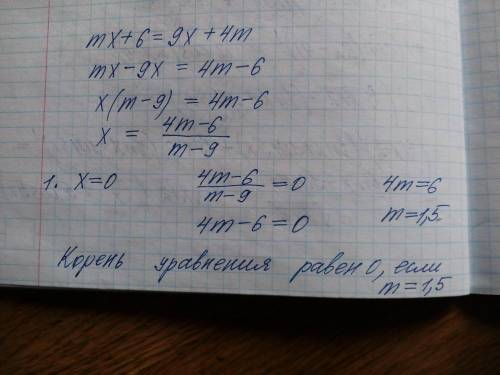 mx+6=9x+4m
mx-9x = 4m-6
x(m-9) = 4m-6
x = \frac{4m-6}{m-9}
1. x=0 \frac{4m-6}{m-9}=0 4m=6
4m-6=0 m=1,5
Корень уравнения равен 0, если
m=1,5